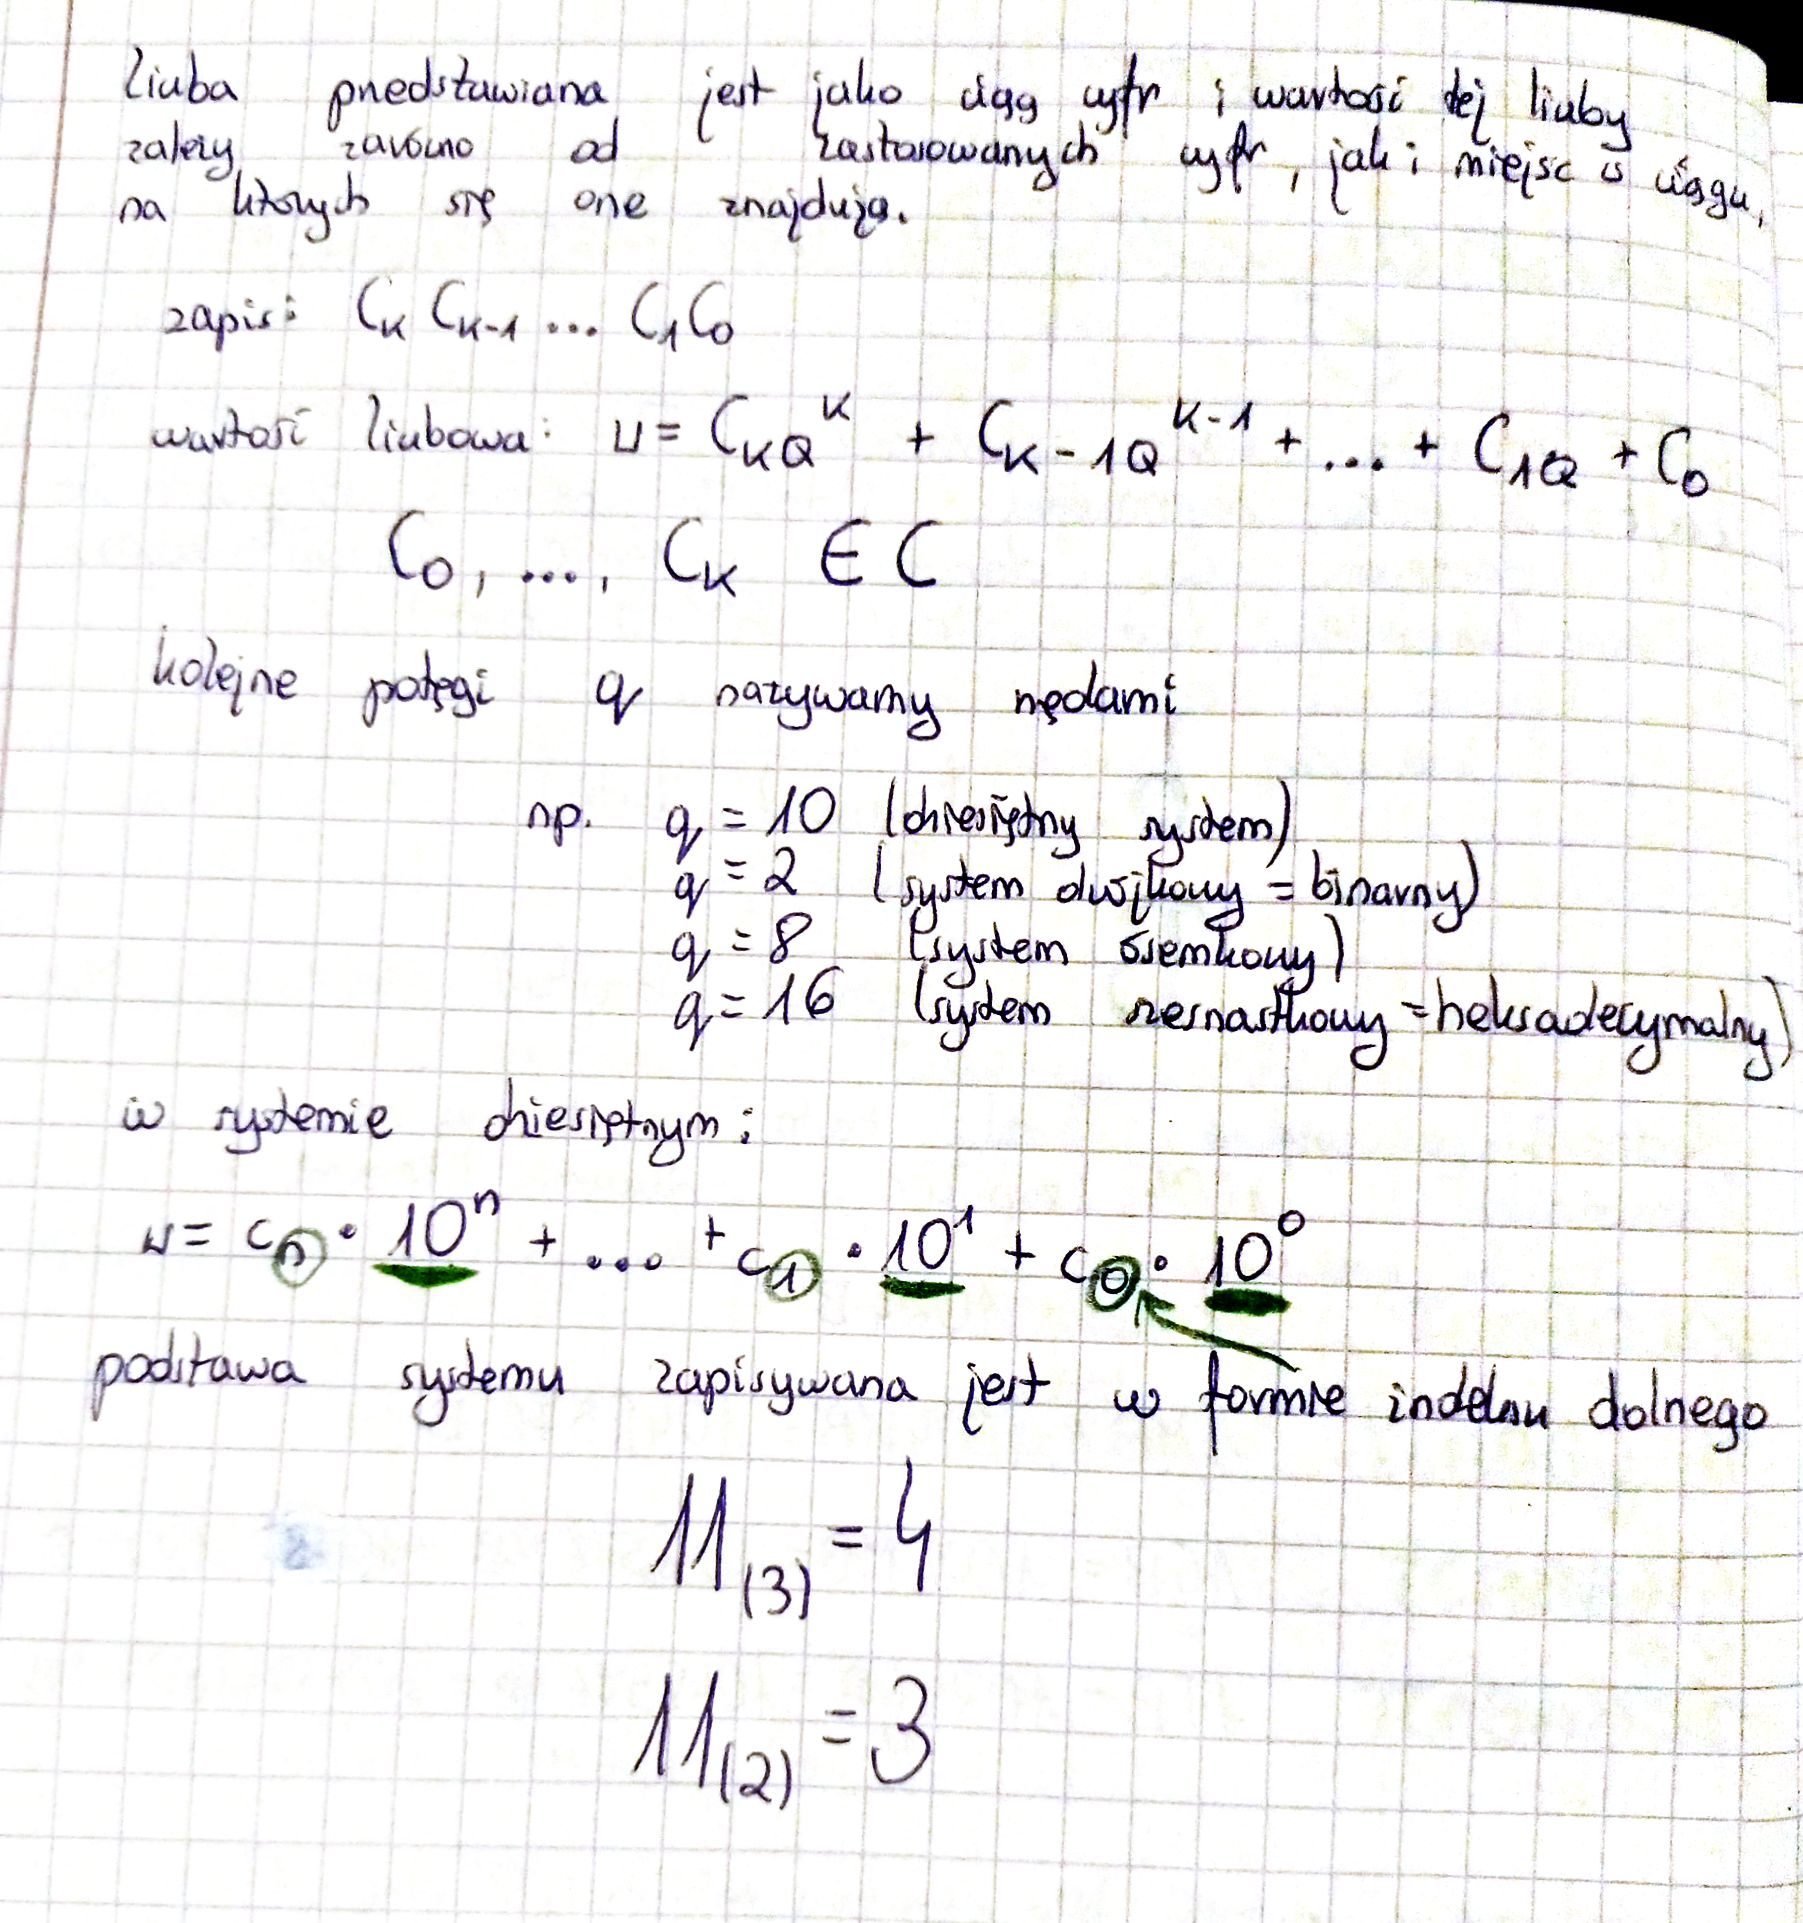 liczba przedstawiana jest jako ciąg cyfr i wartość tej liczby
zależy zarówno od zastosowanych cyfr, jak i miejsc w ciągu,
na których się one znajdują.
zapis: Cₖ Cₖ₋₁ ... C₁C₀
wartość liczbowa: w = C_KQ^K + C_K-1Q^K-1 + ... + C_1Q + C₀
C₀, ..., Cₖ ∈ C
kolejne potęgi q nazywamy rzędami
np. q = 10 (dziesiętny system)
q = 2 (system dwójkowy = binarny)
q = 8 (system ósemkowy)
q = 16 (system szesnastkowy = heksadecymalny)
w systemie dziesiętnym:
w = cₙ · 10ⁿ + ... + c₁ · 10¹ + c₀ · 10⁰
podstawa systemu zapisywana jest w formie indeksu dolnego
11₍₃₎ = 4
11₍₂₎ = 3